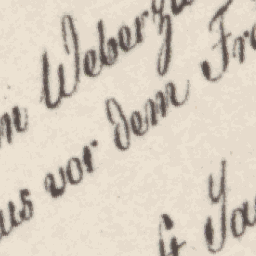 Weberzu
us vor dem Fr
G Ja